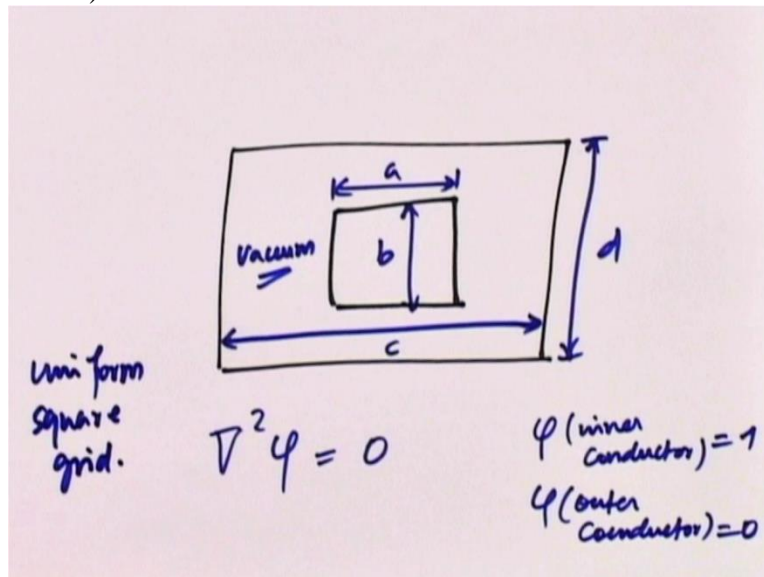 a
vacuum
b
d
c
uniform
square
grid.
∇²φ = 0
φ (inner
conductor) = 1
φ (outer
conductor) = 0